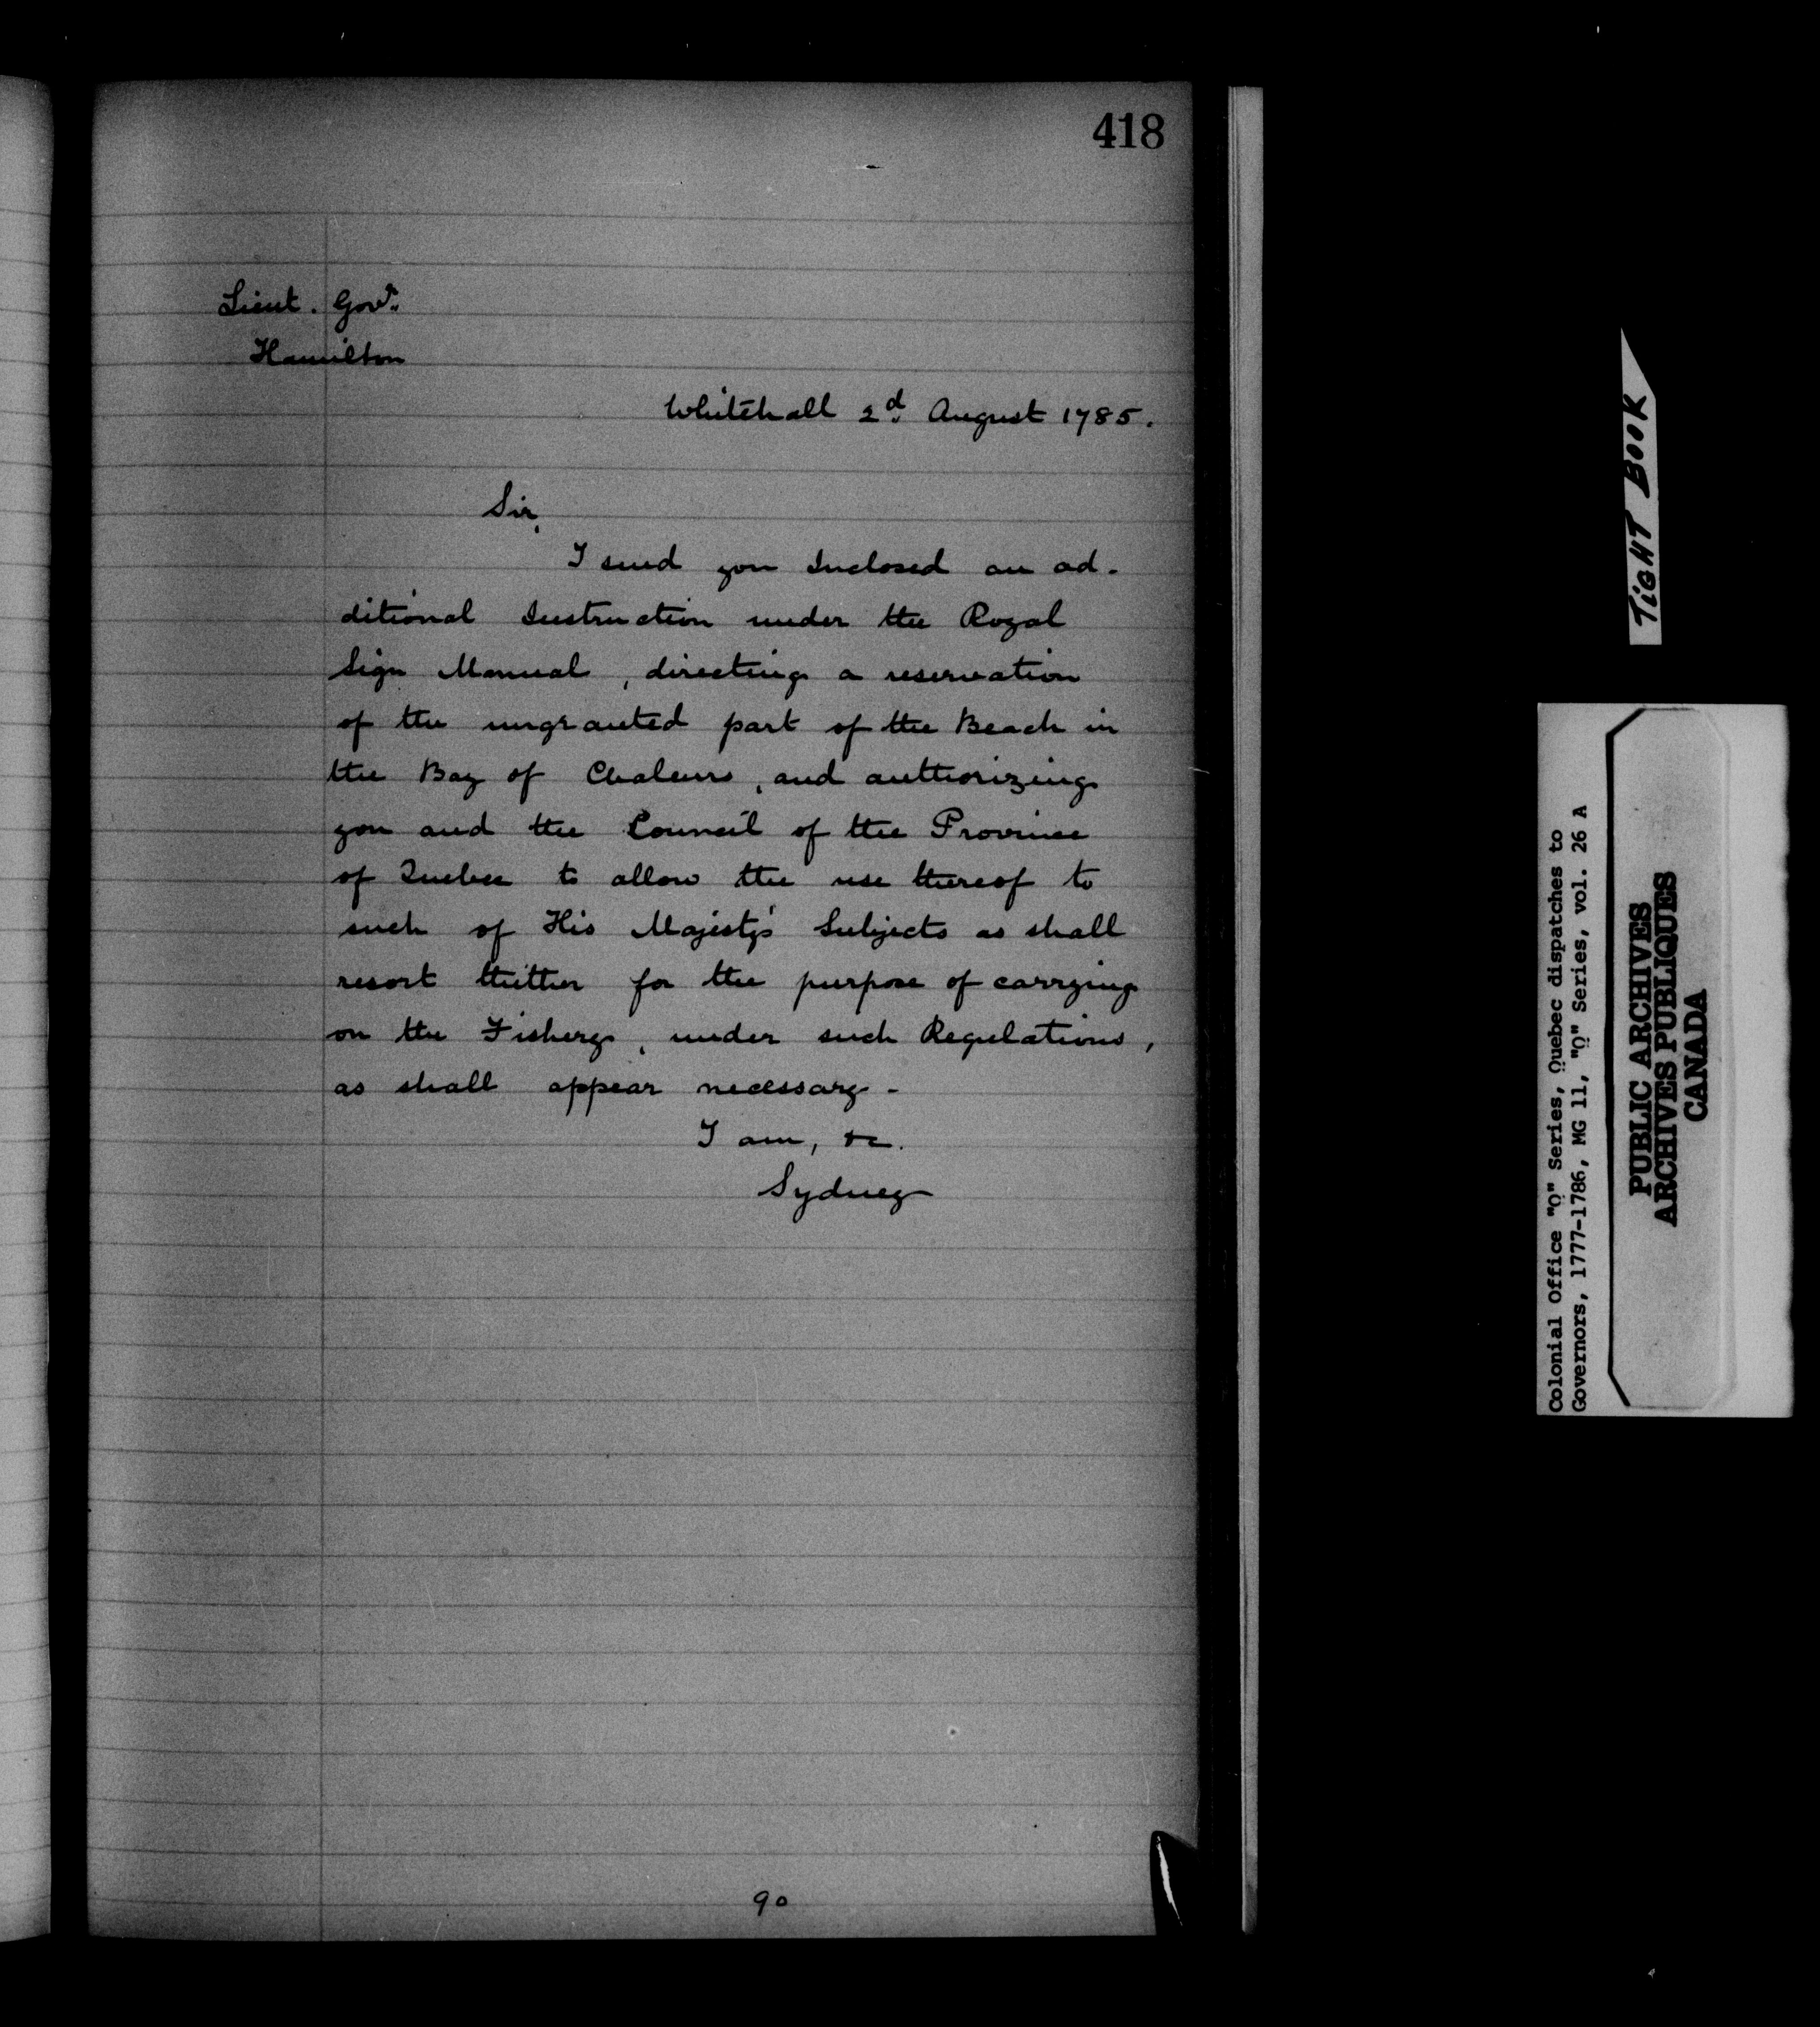 418
Lieut. Govr.
Hamilton
Whitehall 2d August 1785.
Sir,
I send you Inclosed an ad-
ditional Instruction under the Royal
Sign Manual, directing a reservation
of the ungranted part of the Beach in
the Bay of Chaleurs, and authorizing
you and the Council of the Province
of Quebec to allow the use thereof to
such of His Majesty's Subjects as shall
resort thither for the purpose of carrying
on the Fishery, under such Regulations,
as shall appear necessary -
I am, &c.
Sydney
90
TIGHT BOOK
Colonial Office "Q" Series, Quebec dispatches to
Governors, 1777-1786, MG 11, "Q" Series, vol. 26 A
PUBLIC ARCHIVES
ARCHIVES PUBLIQUES
CANADA